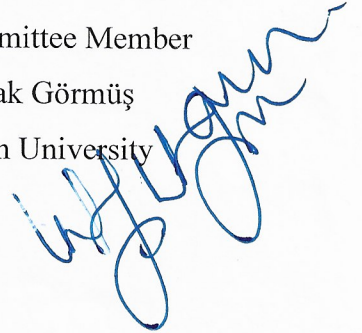 mmittee Member
ak Görmüş
n University